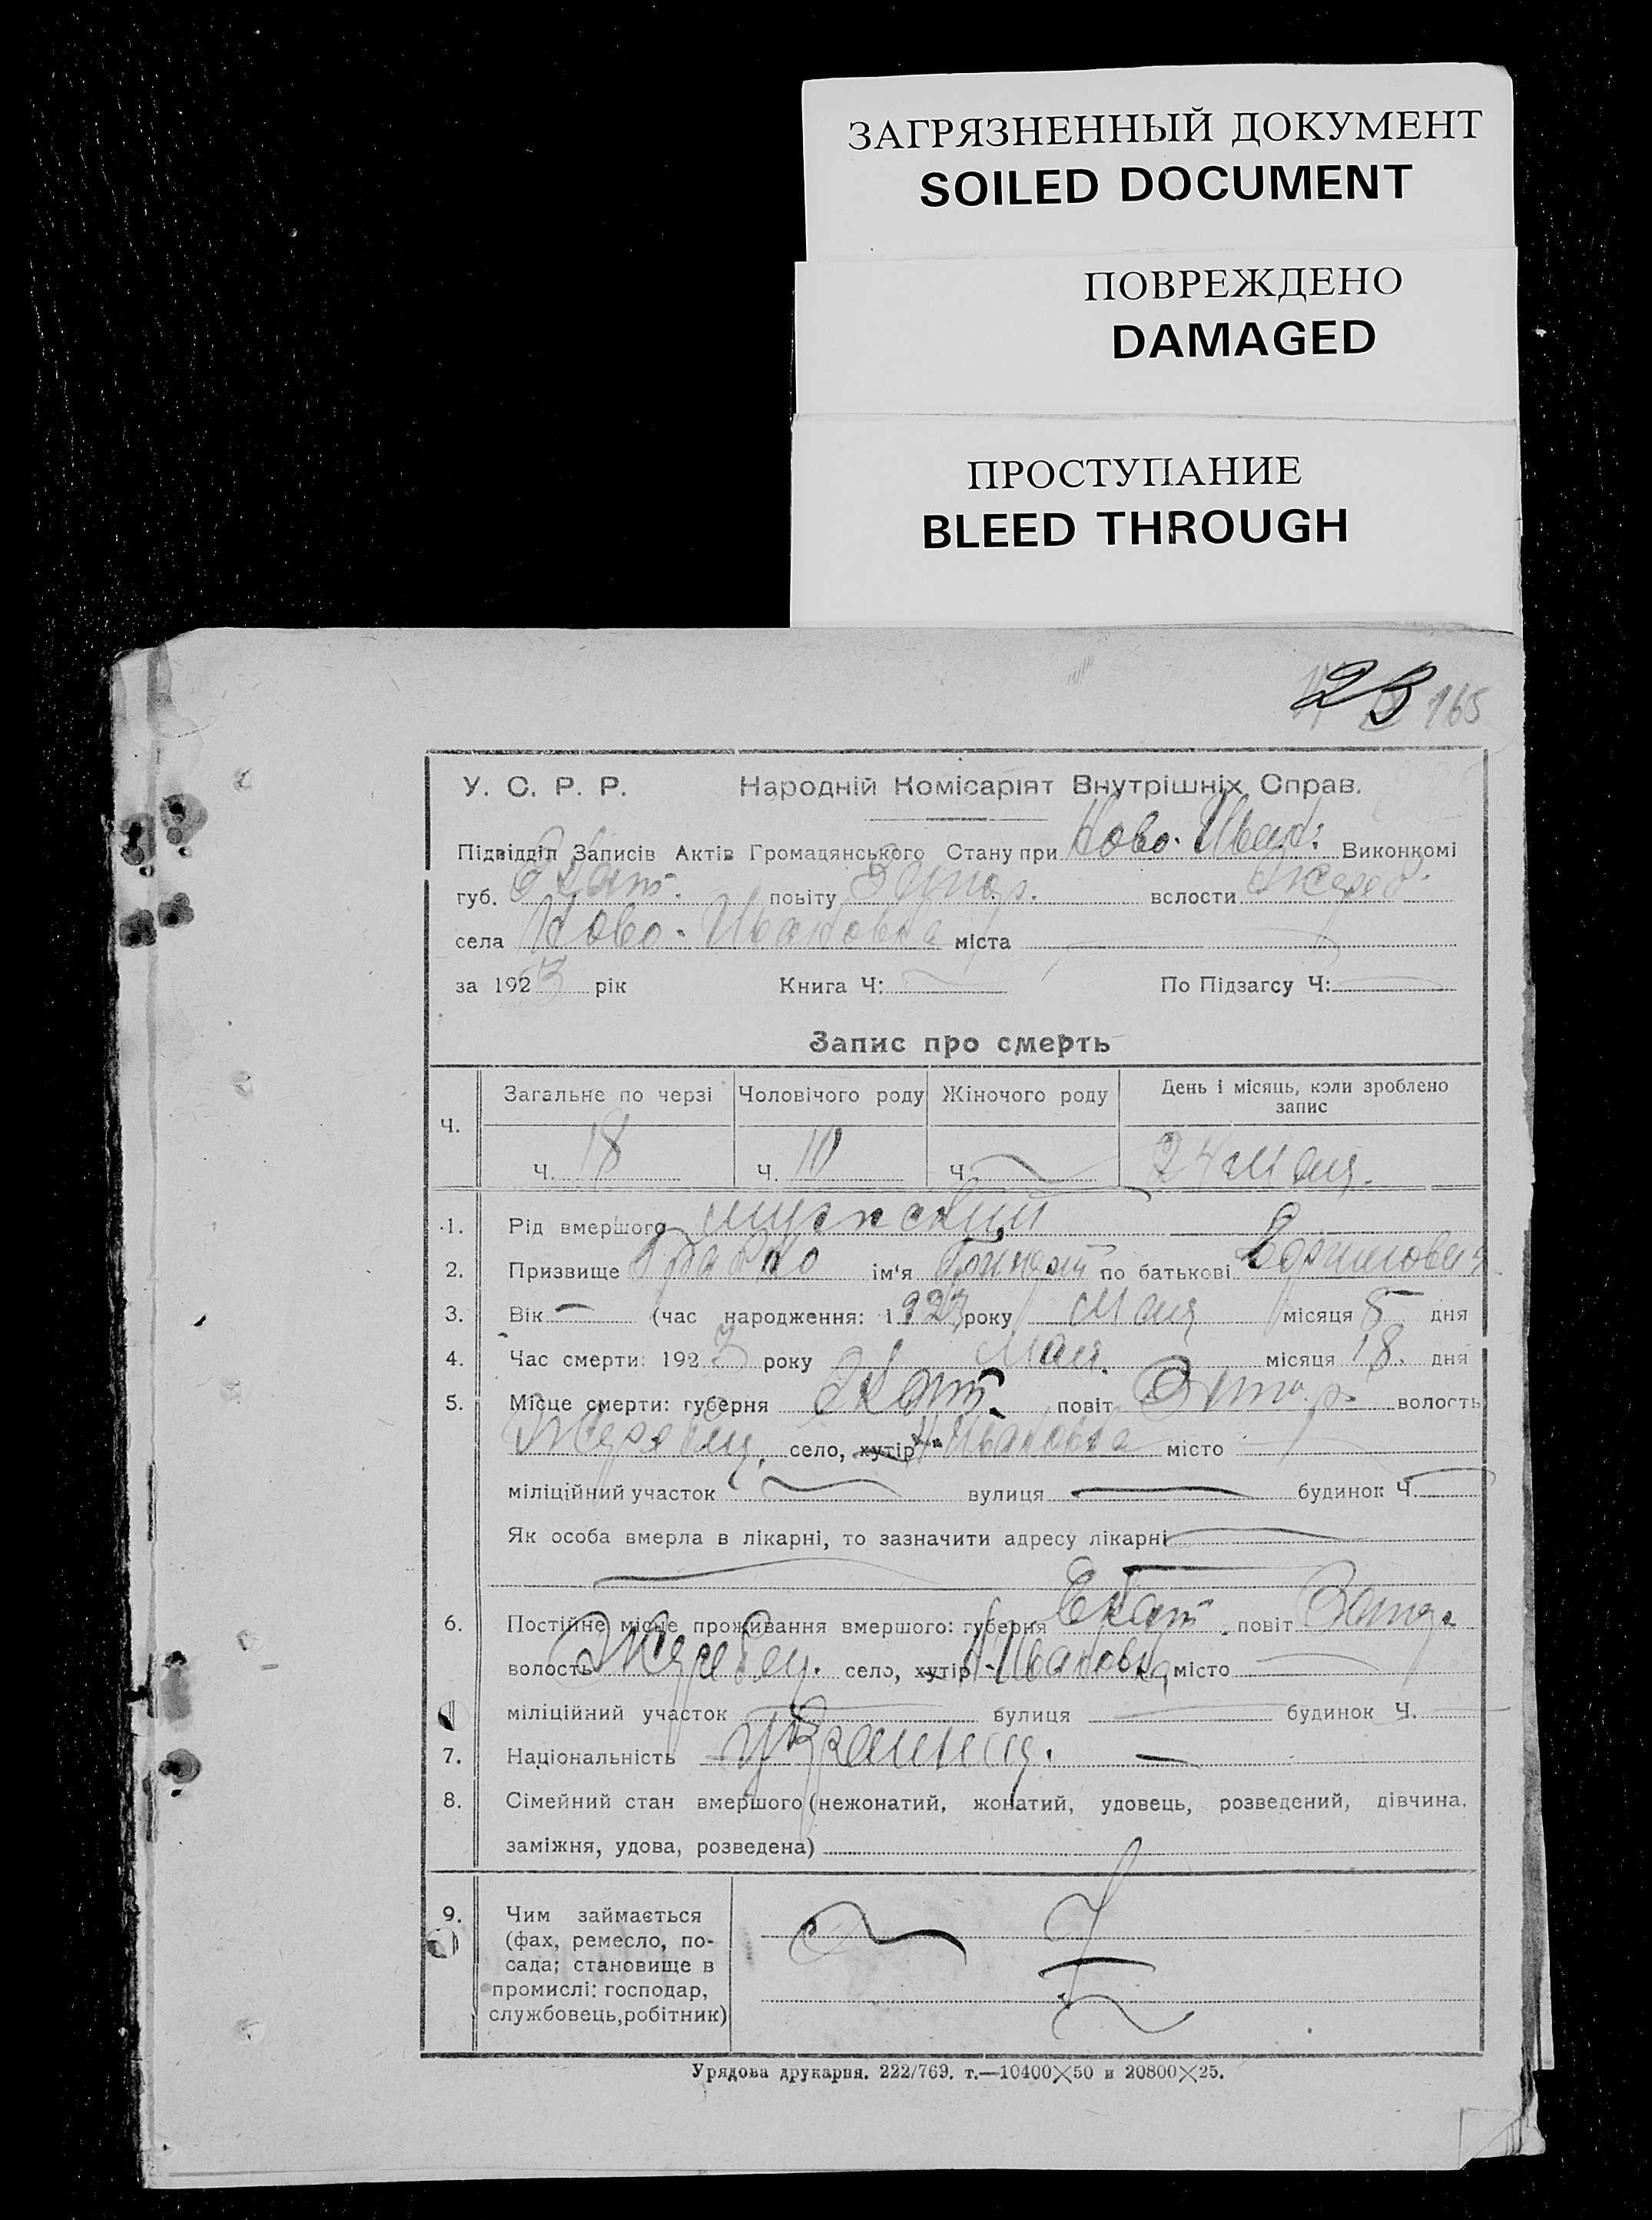 ЗАГРЯЗНЕННЫЙ ДОКУМЕНТ
SOILED DOCUMENT
ПОВРЕЖДЕНО
DAMAGED
ПРОСТУПАНИЕ
BLEED THROUGH
23 165
У. С. Р. Р. Народній Комісаріят Внутрішніх Справ.
Підвідділ Записів Актів Громадянського Стану при Ново-Иван: Виконкомі
губ. Екат. повіту Запор. волости Жереб.
села Ново-Ивановка міста
за 1923 рік Книга Ч: По Підзагсу Ч:
Запис про смерть
Ч. Загальне по черзі Чоловічого роду Жіночого роду День і місяць, коли зроблено запис
Ч. 18 Ч. 10 Ч. 24 Мая.
1. Рід вмершого мужский
2. Призвище ім'я по батькові
3. Вік — (час народження: 1923 року Мая місяця 5 дня
4. Час смерти: 1923 року Мая. місяця 18. дня
5. Місце смерти: губерня Екат. повіт Запор. волость
Жеребец. село, хутір Н-Ивановка місто
міліційний участок вулиця будинок Ч.
Як особа вмерла в лікарні, то зазначити адресу лікарні
6. Постійне місце проживання вмершого: губерня Екат. повіт Запор.
волость Жеребец. село, хутір Н-Ивановка місто
міліційний участок вулиця будинок Ч.
7. Національність украинец. —
8. Сімейний стан вмершого (нежонатий, жонатий, удовець, розведений, дівчина,
заміжня, удова, розведена)
9. Чим займається
(фах, ремесло, по-
сада; становище в
промислі: господар,
службовець, робітник)
Урядова друкарня. 222/769. т.—10400×50 и 20800×25.